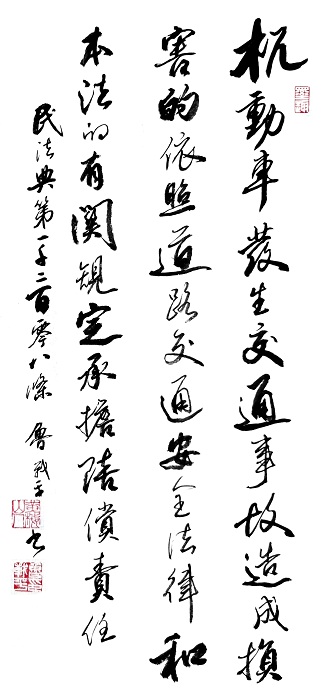 机動車發生交通事故造成損
害的依照道路交通安全法律和
本法的有関規定承擔賠償責任
民法典第一千二百零八條 魯戰平書